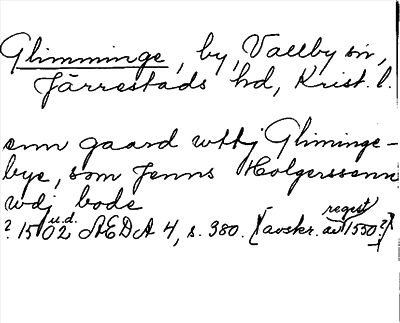 Glimminge, by, Vallby sn,
Järrestads hd, Krist. l.
enn gaard wttj Gliminge-
bye, som Jenns Holgerssenn
wdj bode
? 1502 u.d. AEDA 4, s. 380. [(avskr. av regest 1550?)]